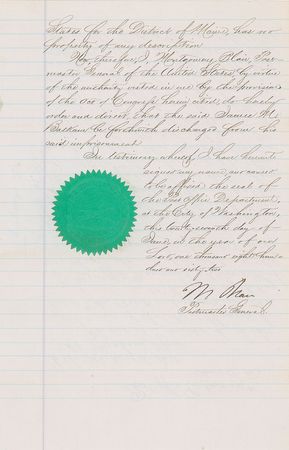 States for the District of Mass, has no
property of any description.
Now, therefore, I, Montgomery Blair, Post-
master General of the United States, by virtue
of the authority vested in me by the provisions
of the Act of Congress herein cited, do hereby
order and direct, that the said James M.
be forthwith discharged from his
said imprisonment.
In testimony whereof, I have hereunto
signed my name, and caused
to be affixed the seal of
the Post Office Department,
at the City of Washington,
this day of
June, in the year of our
Lord, one thousand eight hun-
dred and sixty two
M Blair
Postmaster General.